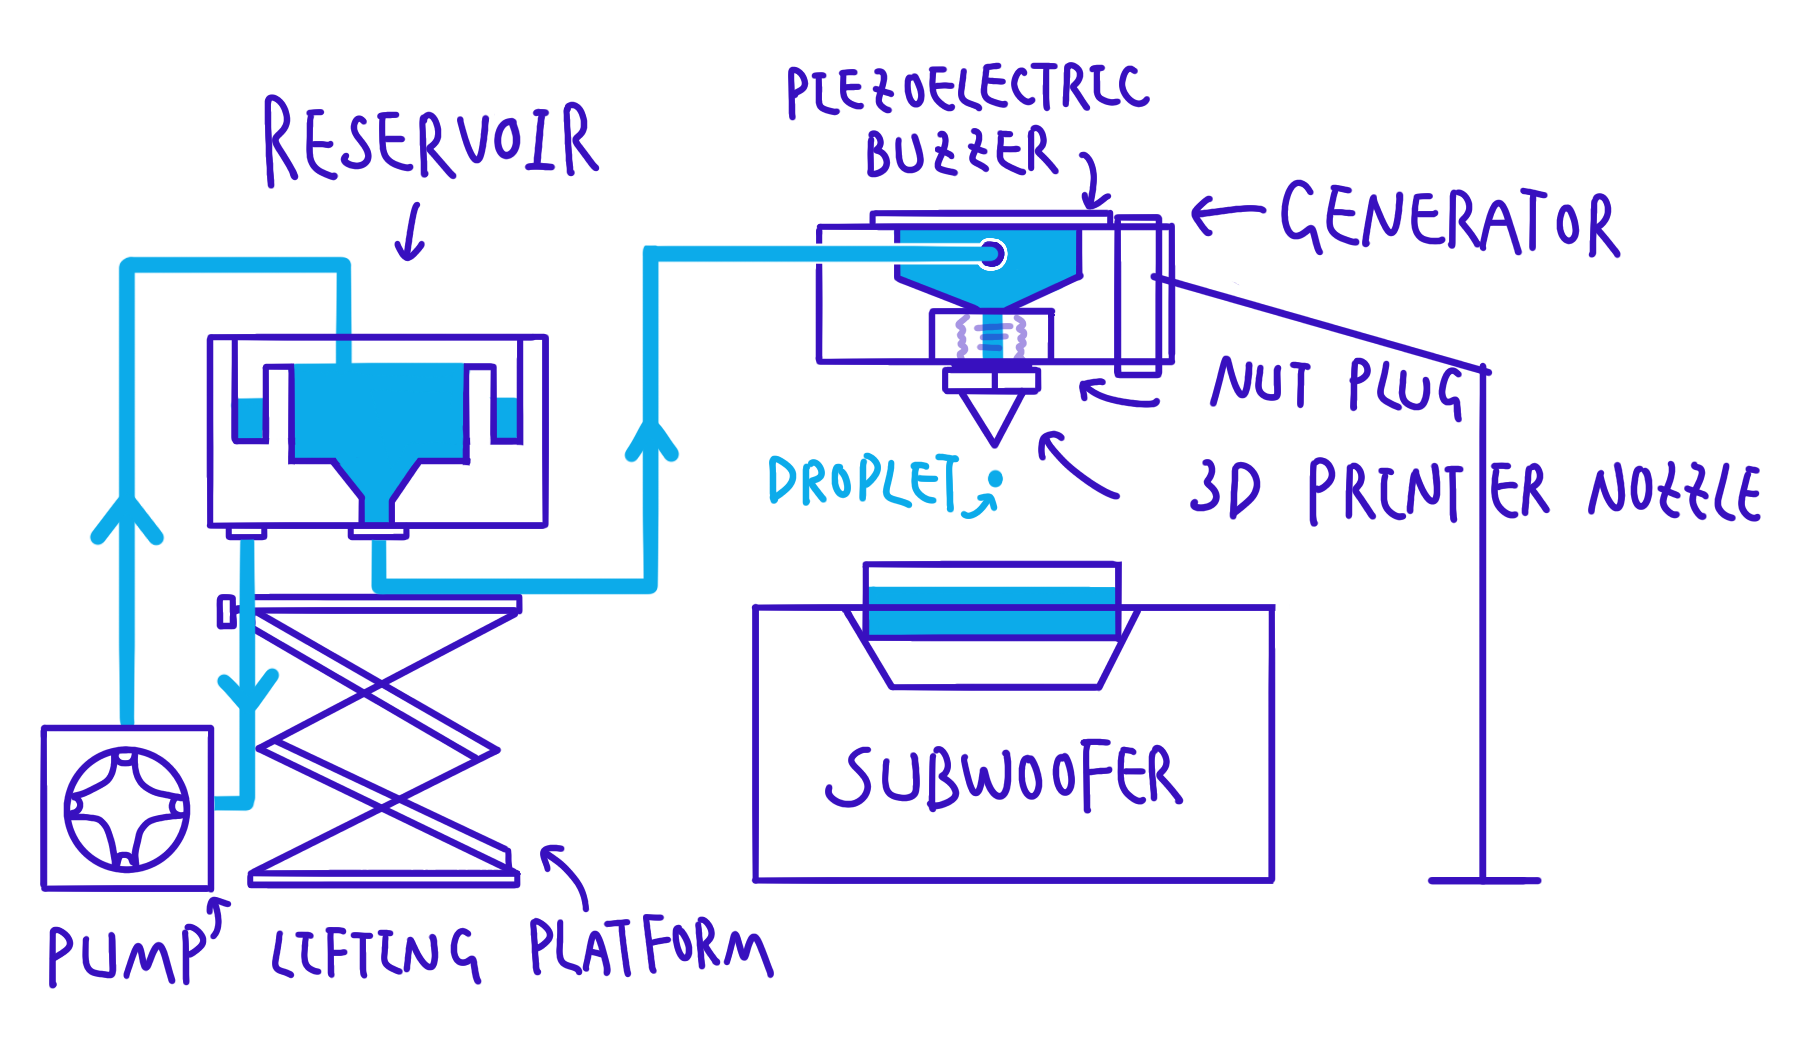 RESERVOIR
PIEZOELECTRIC
BUZZER
GENERATOR
NUT PLUG
3D PRINTER NOZZLE
DROPLET
SUBWOOFER
PUMP
LIFTING PLATFORM